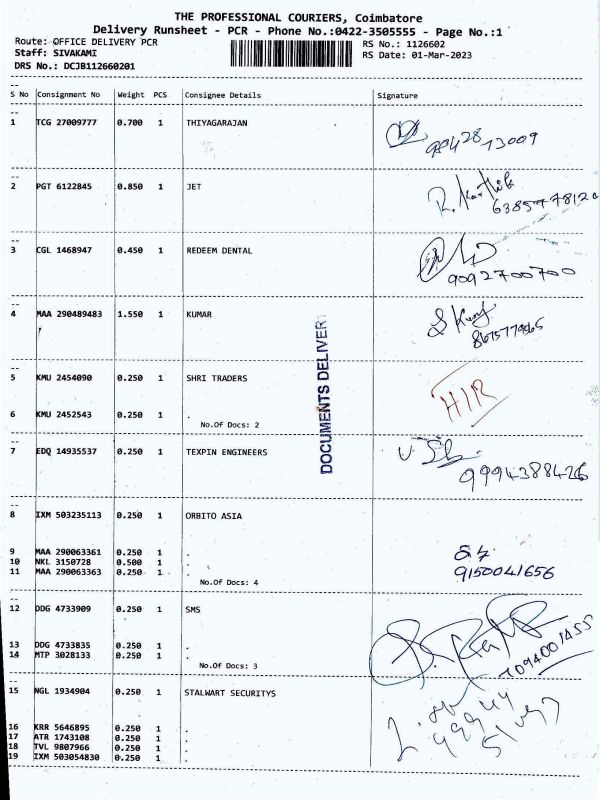 THE PROFESSIONAL COURIERS, Coimbatore
Delivery Runsheet - PCR - Phone No.:0422-3505555 - Page No.:1
Route: OFFICE DELIVERY PCR
RS No.: 1126602
Staff: SIVAKAMI
RS Date: 01-Mar-2023
DRS No.: DCJB112660201
S No Consignment No Weight PCS Consignee Details Signature
1 TCG 27009777 0.700 1 THIYAGARAJAN
2 PGT 6122845 0.850 1 JET
R. Karthik
3 CGL 1468947 0.450 1 REDEEM DENTAL
9092700700
4 MAA 290489483 1.550 1 KUMAR
5 KMU 2454090 0.250 1 SHRI TRADERS
6 KMU 2452543 0.250 1 .
No.Of Docs: 2
DOCUMENTS DELIVER
7 EDQ 14935537 0.250 1 TEXPIN ENGINEERS
9994388426
8 IXM 503235113 0.250 1 ORBITO ASIA
9 MAA 290063361 0.250 1 .
10 NKL 3150728 0.500 1 .
11 MAA 290063363 0.250 1 .
9150041656
No.Of Docs: 4
12 DDG 4733909 0.250 1 SMS
13 DDG 4733835 0.250 1 .
14 MTP 3028133 0.250 1 .
No.Of Docs: 3
7094001455
15 NGL 1934904 0.250 1 STALWART SECURITYS
16 KRR 5646895 0.250 1 .
17 ATR 1743108 0.250 1 .
18 TVL 9807966 0.250 1 .
19 IXM 503054830 0.250 1 .